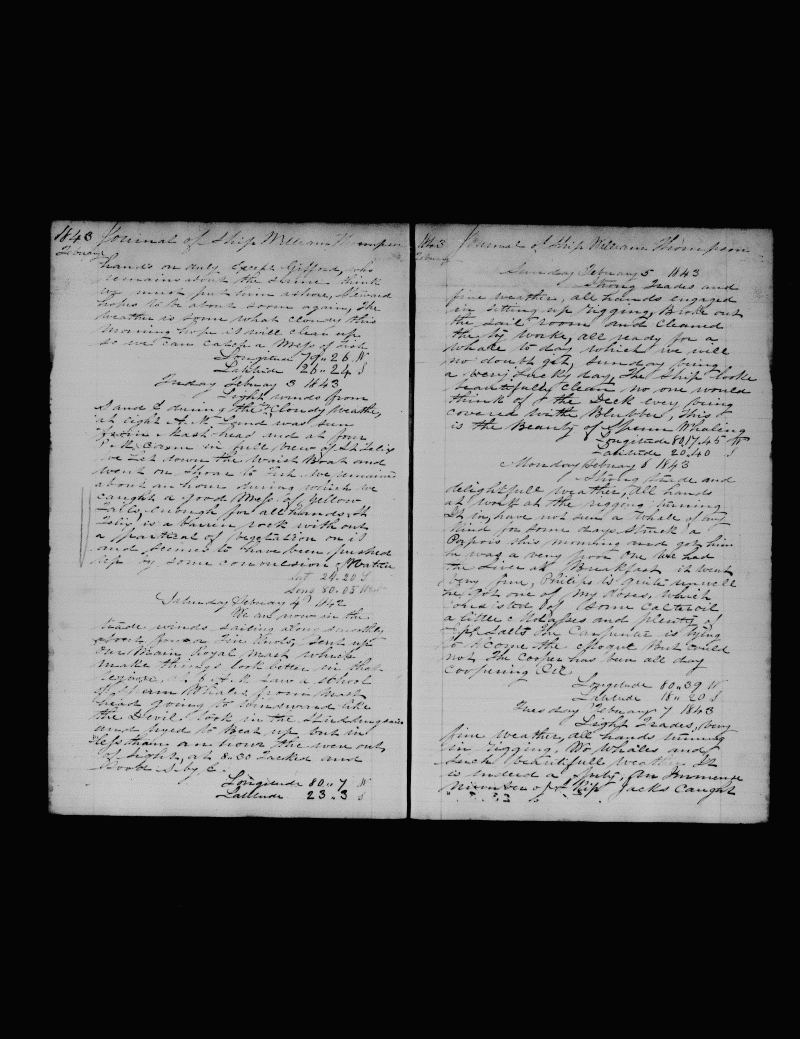 1843 Journal of Ship William Thompson
February
hands on duty except Gifford, who
remains about the same think
we must put him ashore, Steward
hopes to be about soon again, the
weather is some what cloudy this
morning hope it will clear up
so we can catch a Mess of Fish
Longitude 79" 26 W
Latitude 26" 24 S
Friday February 3 1843
Light winds from
S and E during the Cloudy Weather,
at eight A.M. Land was seen
from Mast head and at four
P.M. came in full view of St Felix
we let down the Waist Boat and
went on Shoar to Fish we remained
about an hour during which we
caught a good Mess of Yellow
Tails, enough for all hands, St
Felix is a barren rock without
a partical of vegetation on it
and seems to have been pushed
up by some convulsion of Nature
Lat 24.20 S
Long 80.05 West
Saturday February 4th 1842
We are now in the
trade winds sailing along smoothly
about four or five knots, Sent up
our Main Royal Mast which
make things look better in that
A.M. saw a school
of Sperm Whales from Mast
head going to windward like
the Devil. took in the Studdingsails
and tryed to Beat up but in
less than an hour the were out
of sight, at 8.30 tacked and
stood N. by E.
Longitude 80" 7 W
Latitude 23" 3 S
1843 Journal of Ship William Thompson
February
Sunday February 5 1843
Strong Trades and
fine weather, all hands engaged
in sitting up Rigging, Broke out
the sail room and Cleaned
the try Works, all ready for a
Whale to day which we will
no doubt get, Sunday being
a very Lucky day, The Ship looks
beautifully clean no one would
think of the Deck ever being
covered with Blubber, this
is the Beauty of Sperm Whaling
Longitude 80,17,45 W
Latitude 20,40 S
Monday February 6 1843
Strong trade and
delightfull weather, all hands
at work at the rigging turning
it in, have not seen a whale of any
kind for some days Struck a
Porpois this morning and got him
he was a very poor one we had
the Liver at Breakfast it went
very fine, Philips is quite unwell
he got one of my Doses, which
consisted of some Caster oil
a little Molasses and plenty of
salts The Carpenter is trying
to come the But could
not The Cooper has been all day
Coopering Oil
Longitude 80" 39 W
Latitude 18" 20 S
Tuesday February 7 1843
Light Trades, very
fine weather, all hands turning
in Rigging, No Whales and
such beautifull weather It
is indeed a pity, An Immense
Number of Skip Jacks Caught